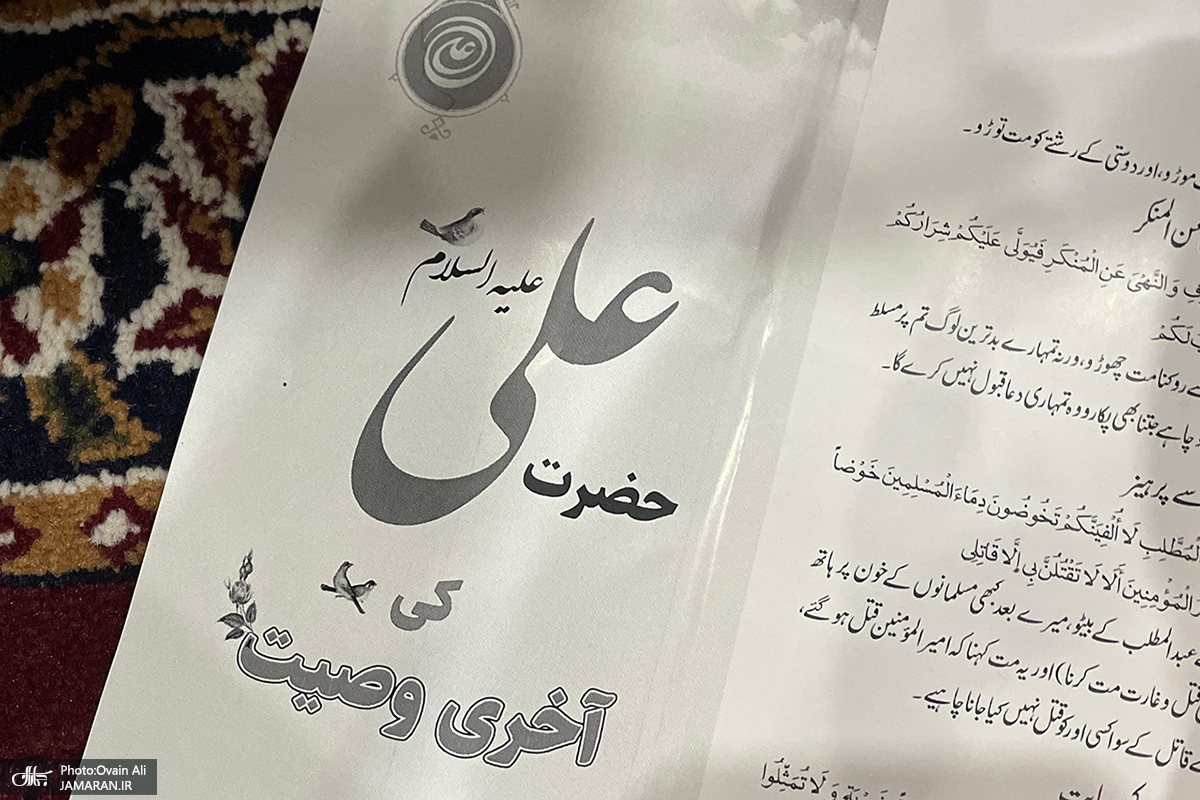 حضرت علی علیہ السلام
کی
آخری وصیت
موڑو، اور دوستی کے رشتے کو مت توڑو۔
عن المنکر
وَالنَّهْيَ عَنِ الْمُنْكَرِ فَيُوَلَّى عَلَيْكُمْ شِرَارُكُمْ
لَكُمْ
روکنا مت چھوڑو، ورنہ تمہارے بدترین لوگ تم پر مسلط
چاہے جتنا بھی پکارو وہ تمہاری دعا قبول نہیں کرے گا۔
سے پرہیز
الْمُطَّلِبِ لَا أُلْفِيَنَّكُمْ تَخُوضُونَ دِمَاءَ الْمُسْلِمِينَ خَوْضاً
الْمُؤْمِنِينَ أَلَا لَا تَقْتُلُنَّ بِي إِلَّا قَاتِلِي
عبدالمطلب کے بیٹو، میرے بعد کبھی مسلمانوں کے خون پر ہاتھ
قتل و غارت مت کرنا) اور یہ مت کہنا کہ امیرالمؤمنین قتل ہو گئے،
قاتل کے سوا کسی اور کو قتل نہیں کیا جانا چاہیے۔
وَلَا تُمَثِّلُوا
جماران
Photo:Ovain Ali
JAMARAN.IR